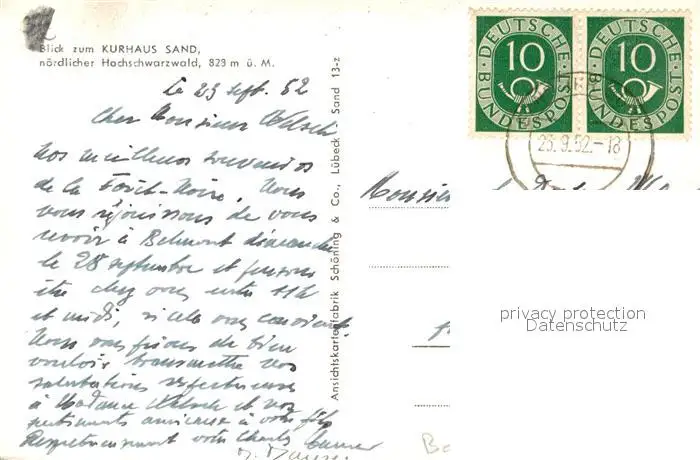 Blick zum KURHAUS SAND,
nördlicher Hochschwarzwald, 829 m ü. M.
Le 23 sept. 52
Cher Monsieur Welsch
Nos meilleurs souvenirs
de la Forêt-Noire. Nous
nous réjouissons de vous
revoir à Belmont dimanche
le 28 septembre et pensons
être chez vous entre 11h
et midi, si cela vous convient
Nous vous prions de bien
vouloir transmettre nos
salutations respectueuses
à Madame Welsch et nos
sentiments amicaux à votre fils
Respectueusement votre Charles
Ansichtskartenfabrik Schöning & Co., Lübeck Sand 13-z
DEUTSCHE BUNDESPOST 10
DEUTSCHE BUNDESPOST 10
23.9.52.-18
Monsieur
privacy protection
Datenschutz